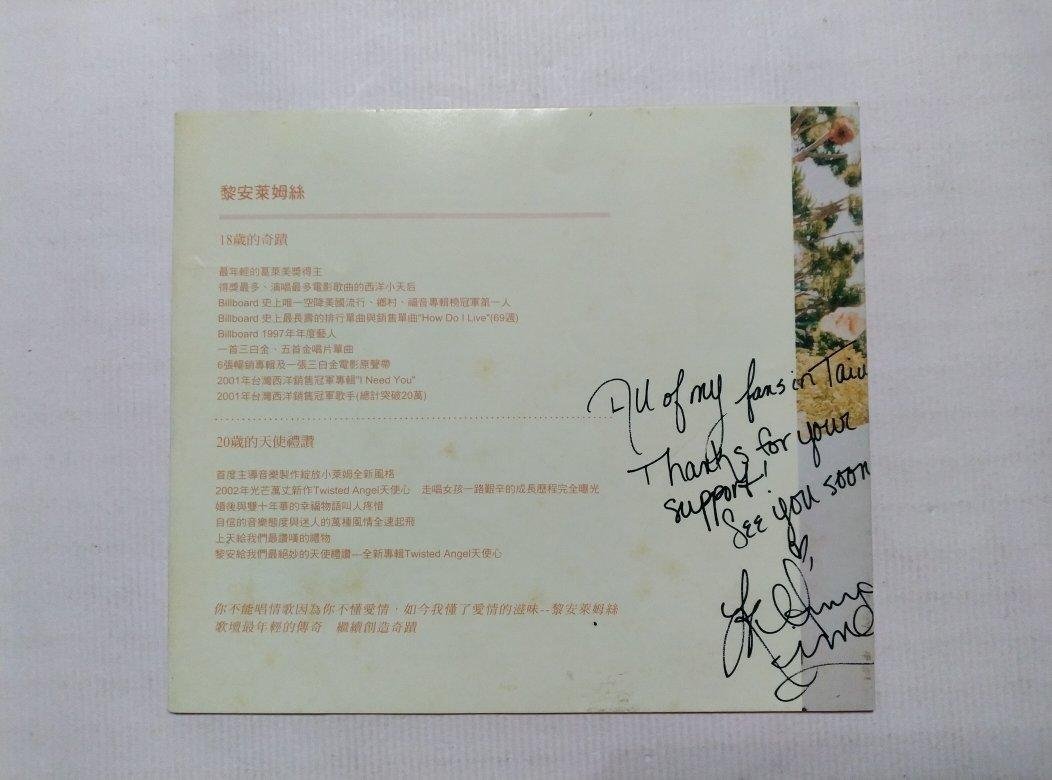 黎安萊姆絲
18歲的奇蹟
最年輕的葛萊美獎得主
得獎最多、演唱最多電影歌曲的西洋小天后
Billboard 史上唯一空降美國流行、鄉村、福音專輯榜冠軍第一人
Billboard 史上最長壽的排行單曲與銷售單曲"How Do I Live"(69週)
Billboard 1997年年度藝人
一首三白金、五首金唱片單曲
6張暢銷專輯及一張三白金電影原聲帶
2001年台灣西洋銷售冠軍專輯"I Need You"
2001年台灣西洋銷售冠軍歌手(總計突破20萬)
20歲的天使禮讚
首度主導音樂製作綻放小萊姆全新風格
2002年光芒萬丈新作Twisted Angel天使心　走唱女孩一路艱辛的成長歷程完全曝光
婚後與雙十年華的幸福物語叫人疼惜
自信的音樂態度與迷人的萬種風情全速起飛
上天給我們最讚嘆的禮物
黎安給我們最絕妙的天使禮讚---全新專輯Twisted Angel天使心
你不能唱情歌因為你不懂愛情，如今我懂了愛情的滋味--黎安萊姆絲
歌壇最年輕的傳奇　繼續創造奇蹟
All of my fans in Taiw
Thanks for your
support!
See you soon